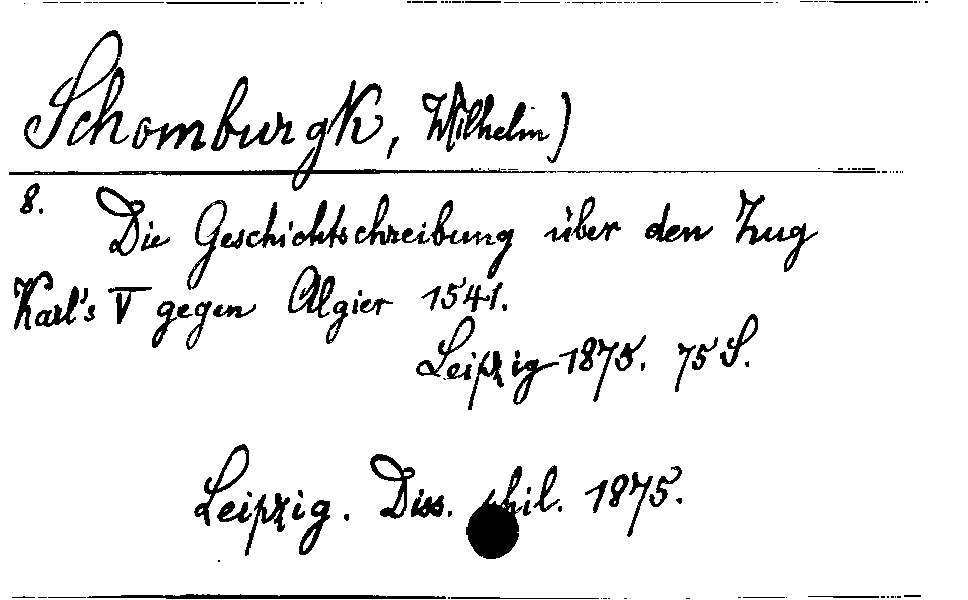 Schomburgk, Wilhelm)
8. Die Geschichtschreibung über den Zug
Karl's V gegen Algier 1541.
Leipzig 1875. 75 S.
Leipzig. Diss. phil. 1875.